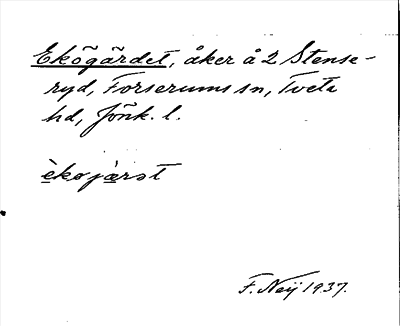 Ekōgārdet, åker å 2 Stense-
ryd, Forserums sn, Tveta
hd, Jönk. l.
èkojàrət
F. Neij 1937.